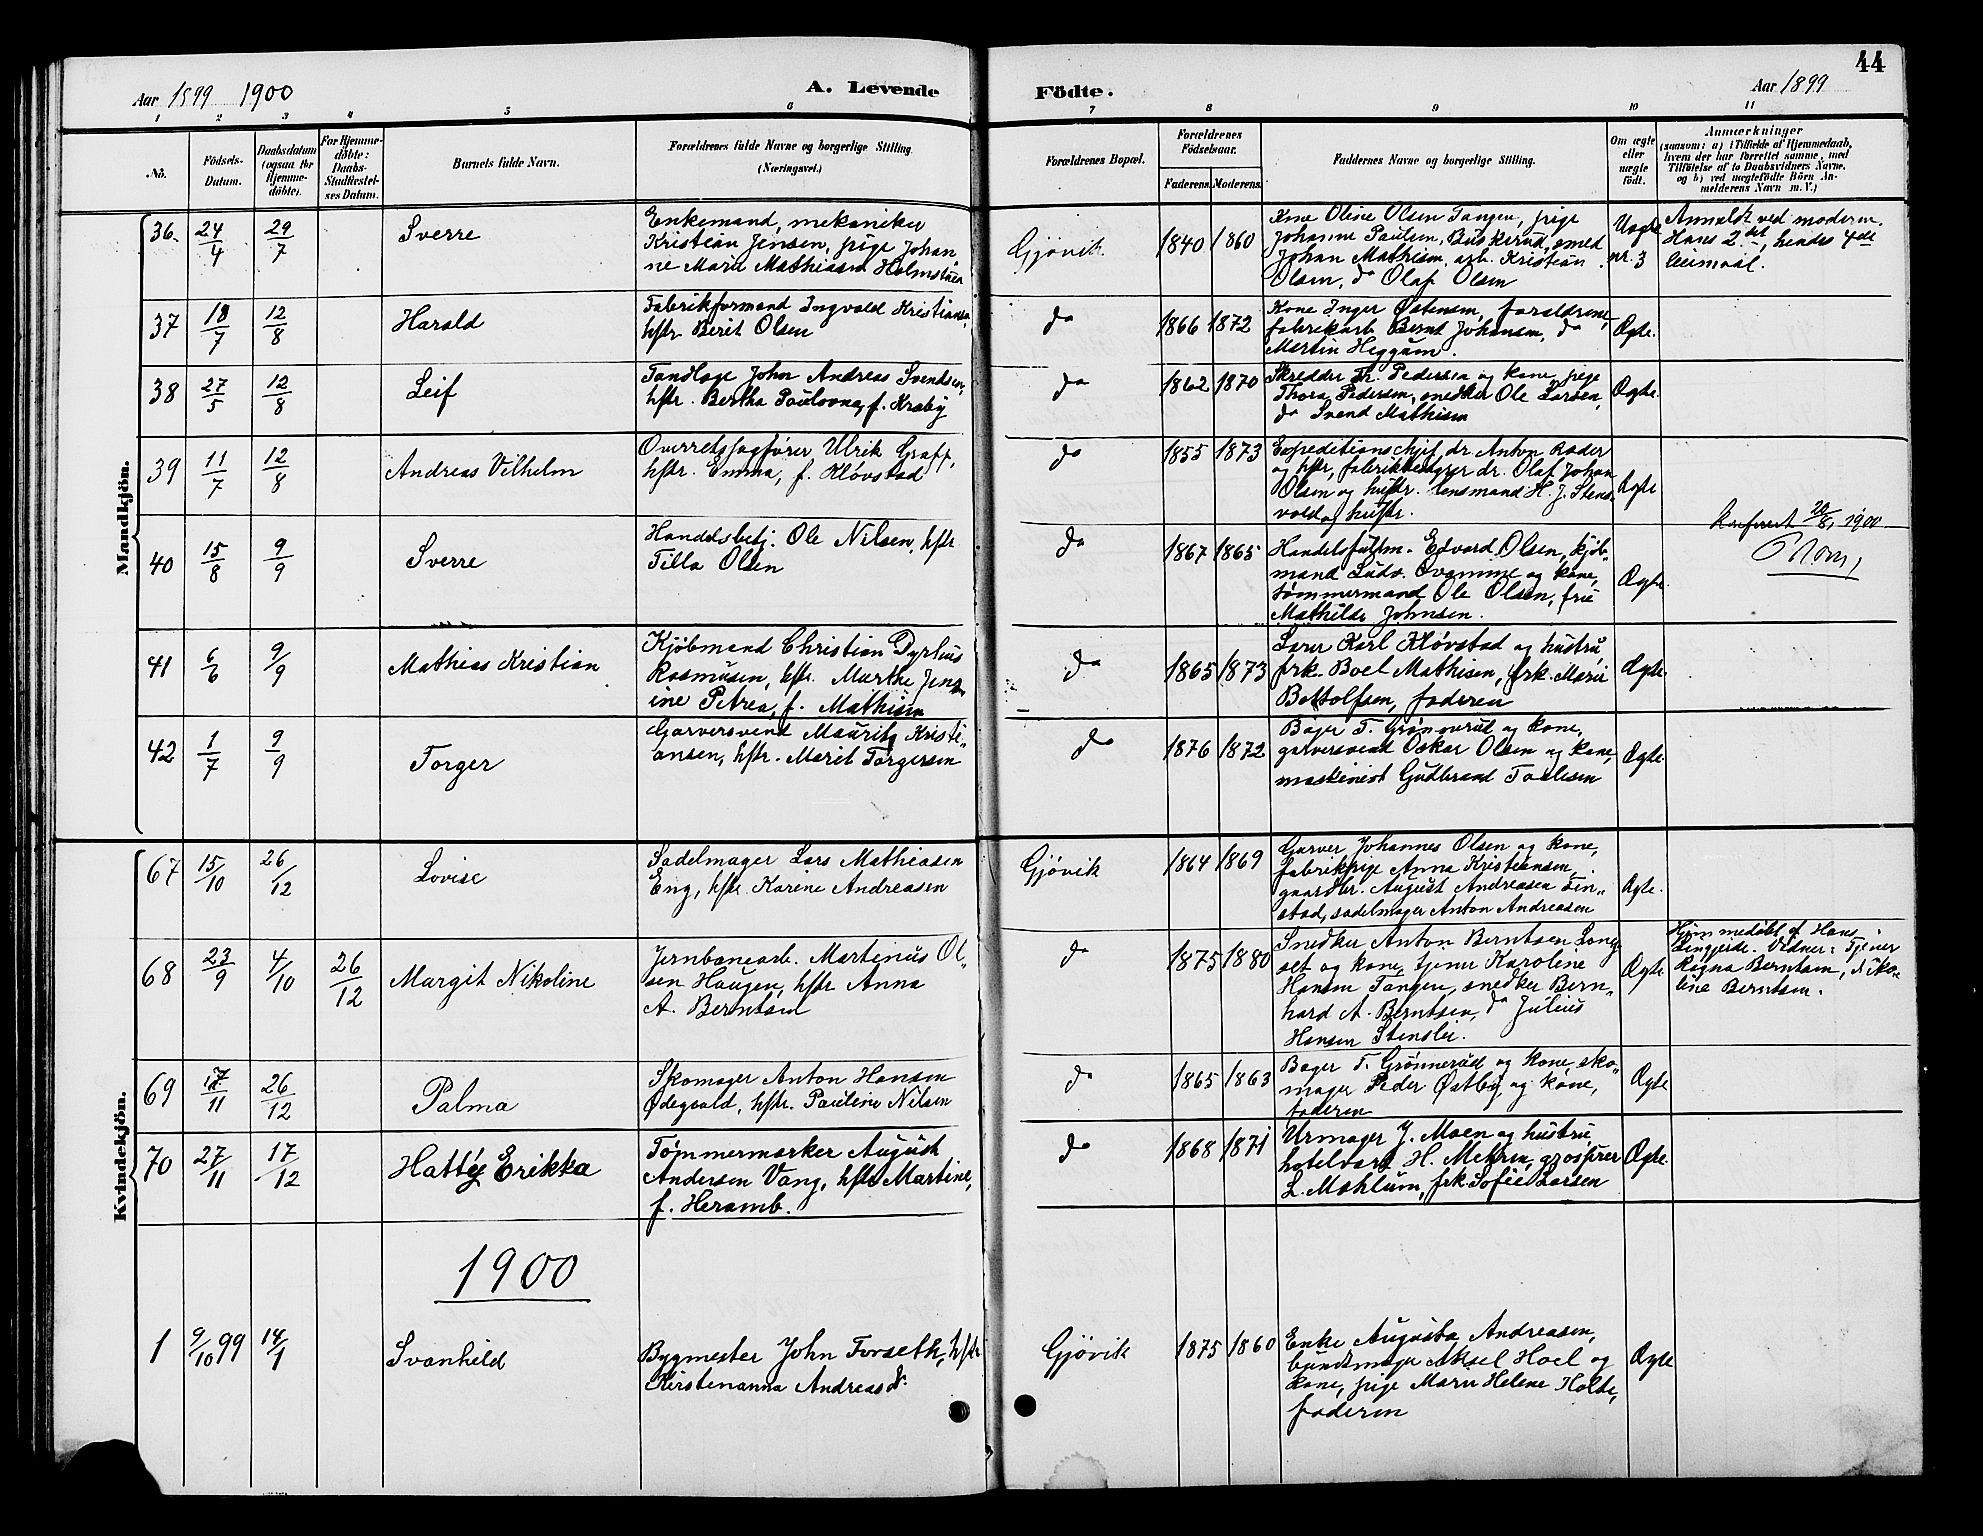 44
Aar 1899 1900
A. Levende
Födte.
Aar 1899
1 2 3 4 5 6 7 8 9 10 11
No.
Födsels-
Datum.
Daabsdatum
(ogsaa for
Hjemme-
döbte).
For Hjemme-
döbte:
Daabs-
Stadfæstel-
ses Datum.
Barnets fulde Navn.
Forældrenes fulde Navne og borgerlige Stilling
(Næringsvei.)
Forældrenes Bopæl.
Forældrenes
Födselsaar.
Faderens. Moderens.
Faddernes Navne og borgerlige Stilling.
Om ægte
eller
uægte
født.
Anmærkninger
(saasom: a) i Tilfælde af Hjemmedaab,
hvem der har forrettet samme, med
Tilføielse af to Daabsvidners Navne.
og b) ved uægtefödte Börn An-
melderens Navn m. V.)
Mandkjön.
36. 24/4 29/7 Sverre
Enkemand, mekaniker
Kristian Jensen, pige Johan
ne Marie Mathisen Holmstuen
Gjøvik 1840 1860
Kone Oline Olsen Tangen, pige
Johanne Paulsen, Buskerud, smed
Johan Mathisen, arb. Kristian
Olsen, do Olaf Olsen
Uægte
nr. 3
Anmeldt ved moderen.
Hans 2det, hendes 4de
leiermaal.
37 18/7 12/8 Harald
Fabrikformand Ingvald Kristiansen,
hstr. Berit Olsen
do 1866 1872
Kone Inger Østensen, forældrene,
fabrikarb. Bernt Johansen, do
Martin Heggum.
Ægte.
38 27/5 12/8 Leif
Tandlæge Johan Andreas Svendsen,
hstr. Bertha Paulovna, f. Kraby
do 1862 1870
Skredder Fr. Pedersen og kone, pige
Thora Pedersen, snedker Ole Larsen,
do Svend Mathisen
Ægte.
39 11/7 12/8 Andreas Vilhelm
Overretssagfører Ulrik Graff,
hstr. Emma, f. Kløvstad
do 1855 1873
Expeditionschef dr. Anton Ræder
og hstr, fabrikbestyrer dr. Olaf Johan
Olsen og hustr. lensmand H. J. Stens-
vold og hustr.
Ægte
40 15/8 9/9 Sverre
Handelsbetj. Ole Nilsen, hstr
Tilla Olsen
do 1867 1865
Handelsfuldm. Edvard Olsen, kjøb-
mand Ludv. og kone,
tømmermand Ole Olsen, frk
Mathilde Johnsen.
Ægte.
Konfereret 20/8 1900
41 6/6 9/9 Mathias Kristian
Kjøbmand Christian Dyrlius
Rasmusen, hstr. Marthe Jens
ine Petrea, f. Mathisen
do 1865 1873
Lærer Karl Kløvstad og hustru
frk. Boel Mathisen, frk. Marie
Bottolfsen, faderen
Ægte.
42 1/7 9/9 Torger
Garversvend Mauritz Kristi-
ansen, hstr. Marit Torgersen
do 1876 1872
Bager T. Grønnerud og kone,
garversvend Oskar Olsen og kone,
maskinist Gudbrand Paulsen
Ægte.
Kvindekjön.
67 15/10 26/12 Lovise
Sadelmager Lars Mathiasen
Eng, hstr. Karine Andreasen
Gjøvik 1864 1869
Garver Johannes Olsen og kone,
fabrikpige Anna Kristiansen,
gaardbr. August Andreasen Fin-
stad, sadelmager Anton Andreasen
Ægte.
68 23/9 4/10 26/12 Margit Nikoline
Jernbanearb. Martinus Ol-
sen Haugen, hstr Anna
A. Berntsen
do 1875 1880
Snedker Anton Berntsen Long
set og kone, tjener Karoline
Hansen Tangen, snedker Bern-
hard A. Berntsen, do Julius
Hansen Stenslie.
Ægte
Hjemmedøbt af Hans
Vidner: Tjener
Ragna Berntsen, Niko-
line Berntsen.
69 17/11 26/12 Palma
Skomager Anton Hansen
Ødegaard, hstr. Pauline Nilsen
do 1865 1863
Bager T. Grønnerud og kone, sko-
mager Peder Østby og kone,
faderen
Ægte
70 27/11 17/12 Hatty Erikka
Tømmermærker August
Andersen Vang, hstr Martine,
f. Heramb.
do 1868 1871
Urmager J. Moen og hustru,
hotelvært H. Mehren, grosserer
L. Mæhlum, frk. Sofie Larsen
Ægte.
1900
1 9/10 99 14/1 Svanhild
Bygmester John Forseth, hstr
Kirstenanna Andreasdr.
Gjøvik 1875 1860
Enke Augusta Andreasen,
buntmager Aksel Hoel og
kone, pige Marie Helene Holte,
faderen
Ægte